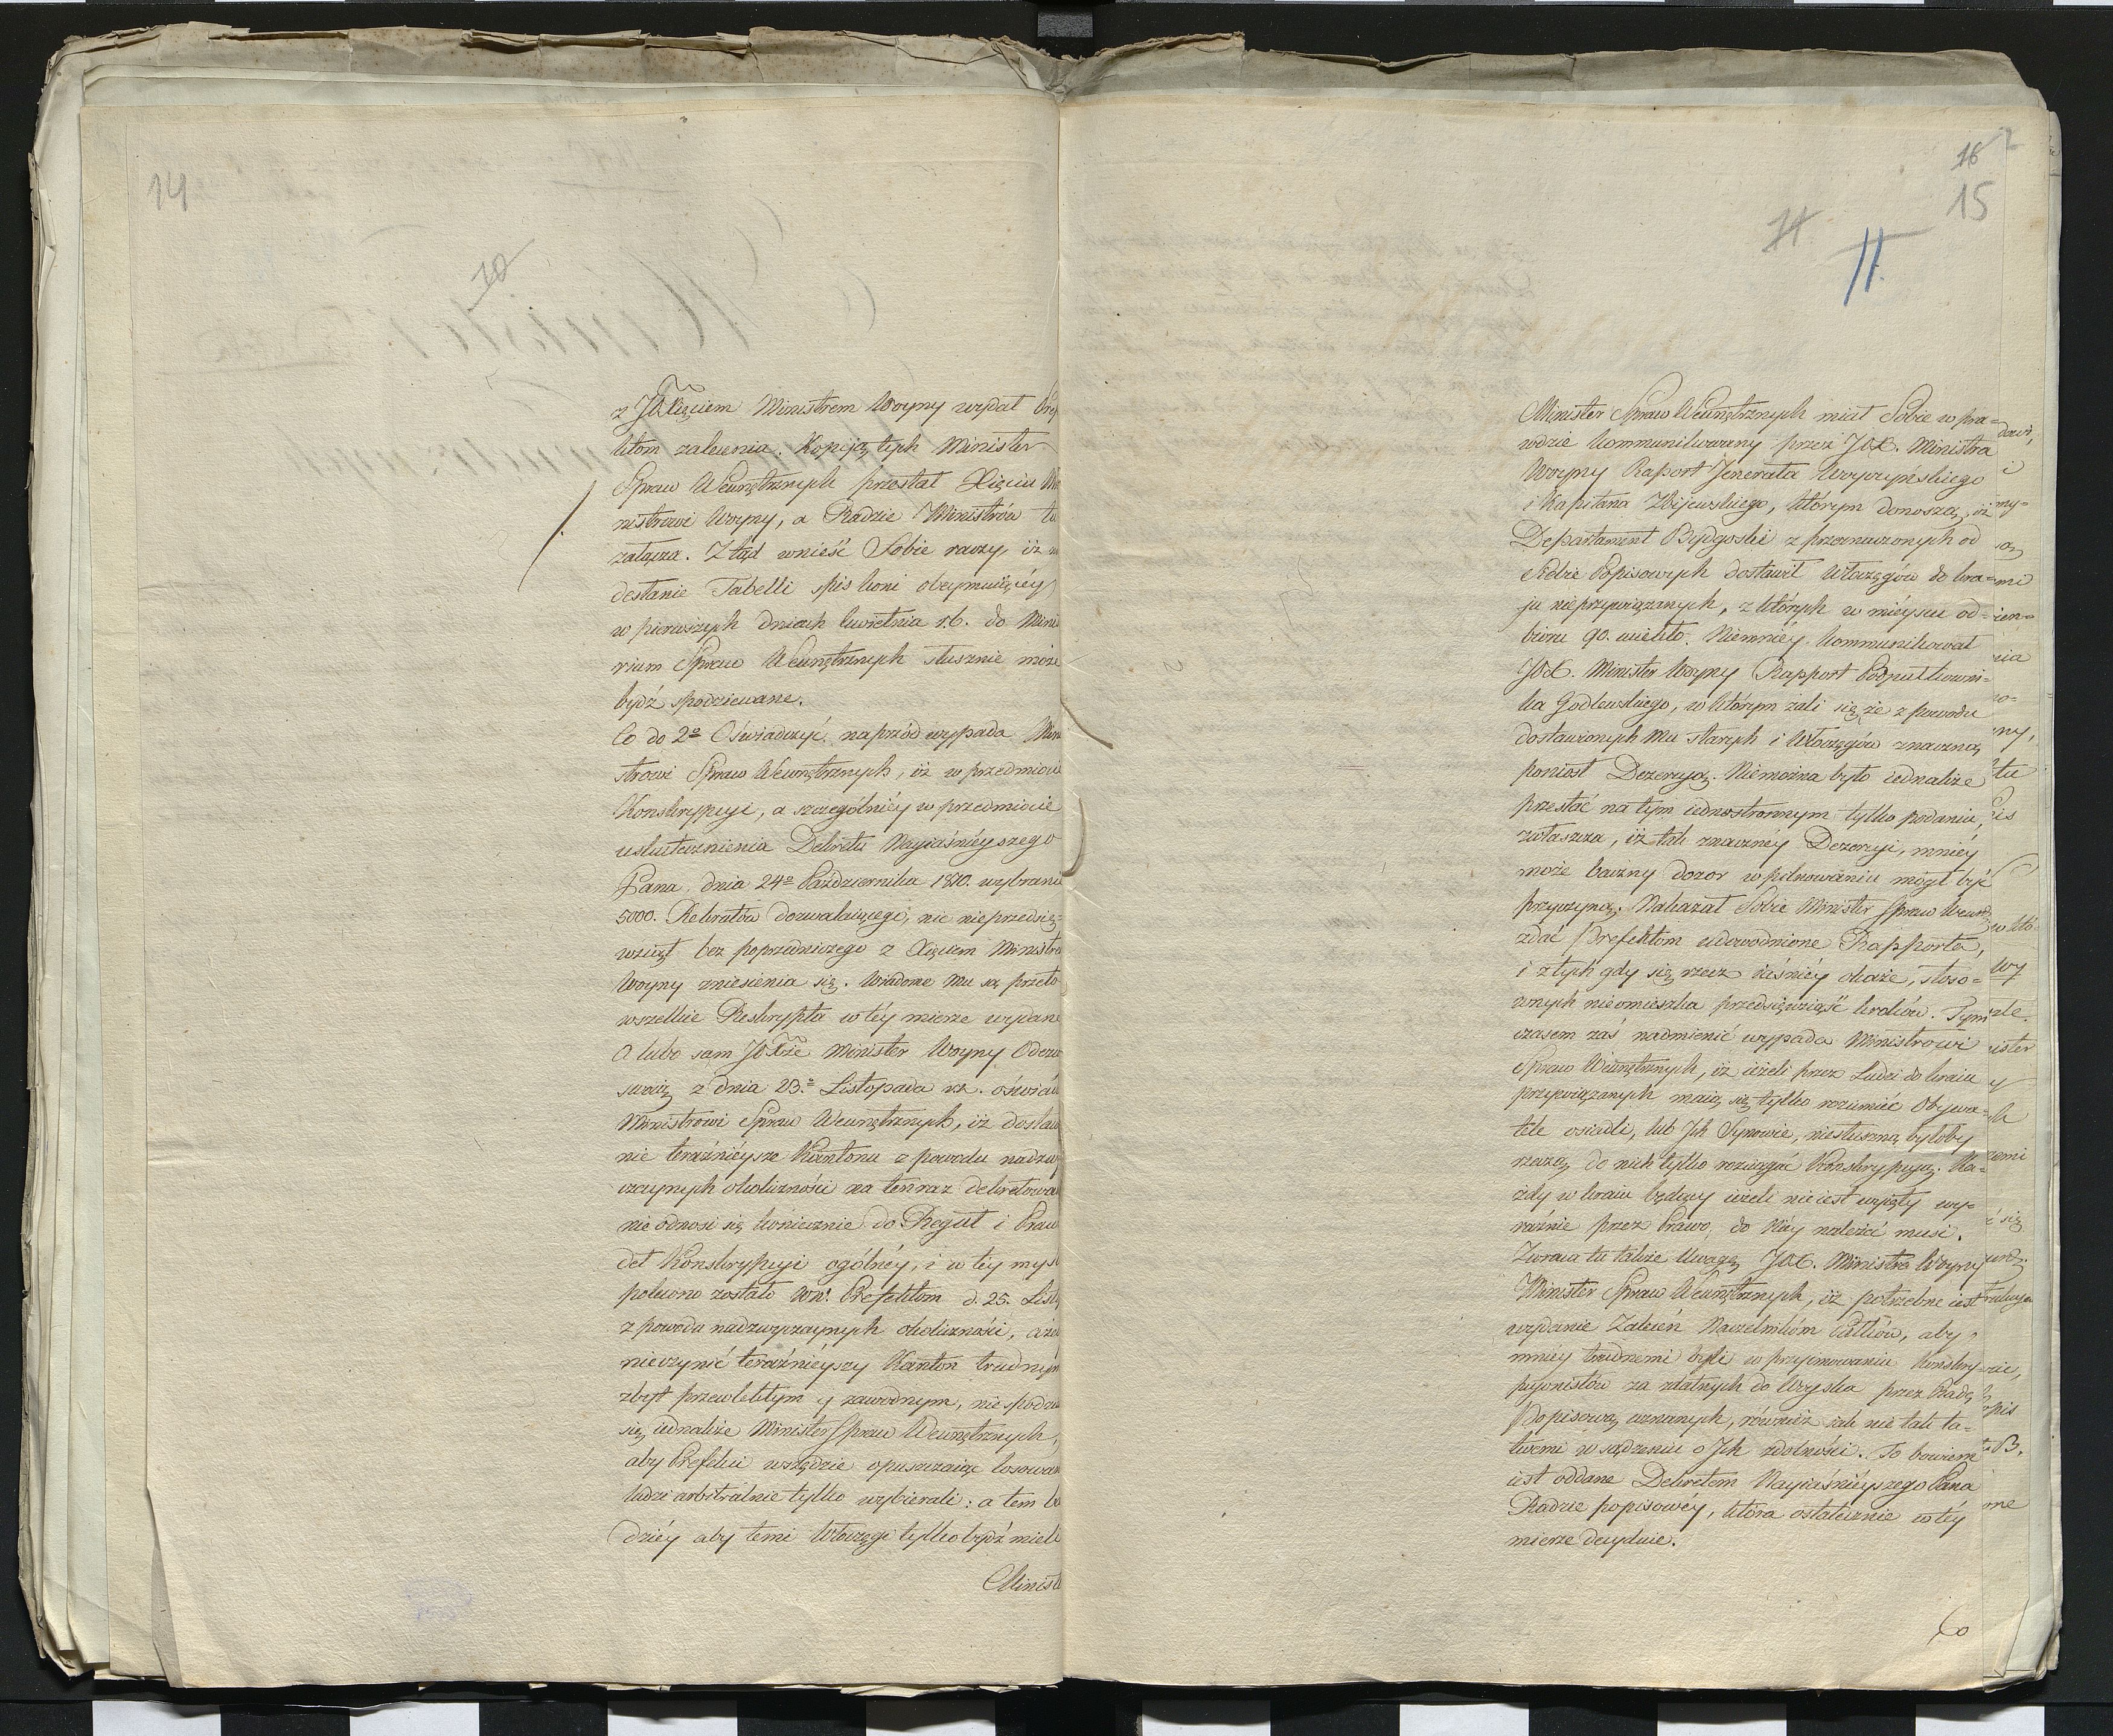 14
10
z JOXięciem Ministrem Woyny wydał Pref
ktom zalecenia. Kopiją tych Minister
Spraw Wewnętrznych przesłał Xięciu Mi
nistrowi Woyny, a Radzie Ministrów tu
załącza. Ztąd wnieść Sobie raczy, iż
desłanie Tabelli spis koni obeymuiącéy
w pierwszych dniach kwietnia r.b. do Mini
rium Spraw Wewnętrznych słusznie może
bydź spodziewane.
Co do 2º Oświadczyć naprzód wypada Mini
strowi Spraw Wewnętrznych, iż w przedmiocie
Konskrypcyi, a szczególniéy w przedmiocie
uskutecznienia Dekretu Nayiaśnieyszego
Pana dnia 24º Października 1810. wybranie
5000. Rekrutów dozwalaiącego, nic nieprzedsię=
wziął bez poprzedniczego z Xięciem Ministre
Woyny zniesienia się. Wiadome Mu są przeto
wszelkie Reskrypta w téy mierze wydane
A lubo sam JOXże Minister Woyny Odezw
swoią z dnia 23º Listopada r.z. oświad
Ministrowi Spraw Wewnętrznych, iż dostaw
nie teraźnieysze Kantonu z powodu nadzwy
czaynych okoliczności na ten raz dekretowa
nie odnosi się koniecznie do Reguł i Praw
deł Konskrypcyi ogólnéy, i w téy myśl
polecono zostało WW. Prefektom d. 25. List
z powodu nadzwyczaynych okoliczności, aże
nieczynić teraźnieyszy Kanton trudnym
zbyt przewlekłym y zawodnym, nie spodzi
się iednakże Minister Spraw Wewnętrznych,
aby Prefekci wszędzie opuszczaiąc losowan
ludzi arbitralnie tylko wybierali: a tem ba
dziéy aby temi Włóczęgi tylko bydź mieli
Minist
16
15
11.
11.
Minister Spraw Wewnętrznych miał Sobie w pra=
wdzie kommunikowany przez JOX. Ministra
Woyny Raport Jenerała Woyczyńskiego
i Kapitana Zbijewskiego, którym donoszą, iż
Departament Bydgoski z przeznaczonych od
siebie Popisowych dostawił Włóczęgów do kra=
ju nieprzywiązanych, z których w mieyscu od=
bioru 90. uciekło. Niemniéy kommunikował
JOX. Minister Woyny Rapport Podpułkowni=
ka Godlewskiego, w którym żali się, że z powodu
dostawionych Mu starych i Włóczęgów znaczną
poniósł Dezercyą. Niemożna było iednakże
przestać na tym iednostronnym tylko podaniu,
zwłaszcza, iż tak znacznéy Dezercyi, mniéy
może baczny dozor w pilnowaniu mógł być
przyczyną. Nakazał Sobie Minister Spraw Wewn:
zdać Prefektom udowodnione Rapporta,
i z tych gdy się rzecz iaśniéy okaże, stoso=
wnych nieomieszka przedsięwziąść kroków. Tym
czasem zaś nadmienić wypada Ministrowi
Spraw Wewnętrznych, iż ieżeli przez Ludzi do kraiu
przywiązanych maią się tylko rozumieć Obywa=
tele osiadli, lub Jch Synowie, niesłuszną byłoby
rzeczą do nich tylko rozciągać Konskrypcyą. Ka=
żdy w kraiu będący ieżeli nie iest wyięty wy=
raźnie przez Prawo, do Niéy należeć musi.
Zwraca tu także Uwagę JOX. Ministra Woyny
Minister Spraw Wewnętrznych, iż potrzebne iest
wydanie Zaleceń Naczelnikóm Pułków, aby
mniéy trudnemi byli w przyimowaniu Konskry=
pcyonistów za zdatnych do Woyska przez Radę
Popisową uznanych, również iak nie tak ła=
twemi w sądzeniu o Jch zdolności. To bowiem
iest oddane Dekretem Nayiaśnieyszego Pana
Radzie popisowéy, która ostatecznie w téy
mierze decyduie.
Co